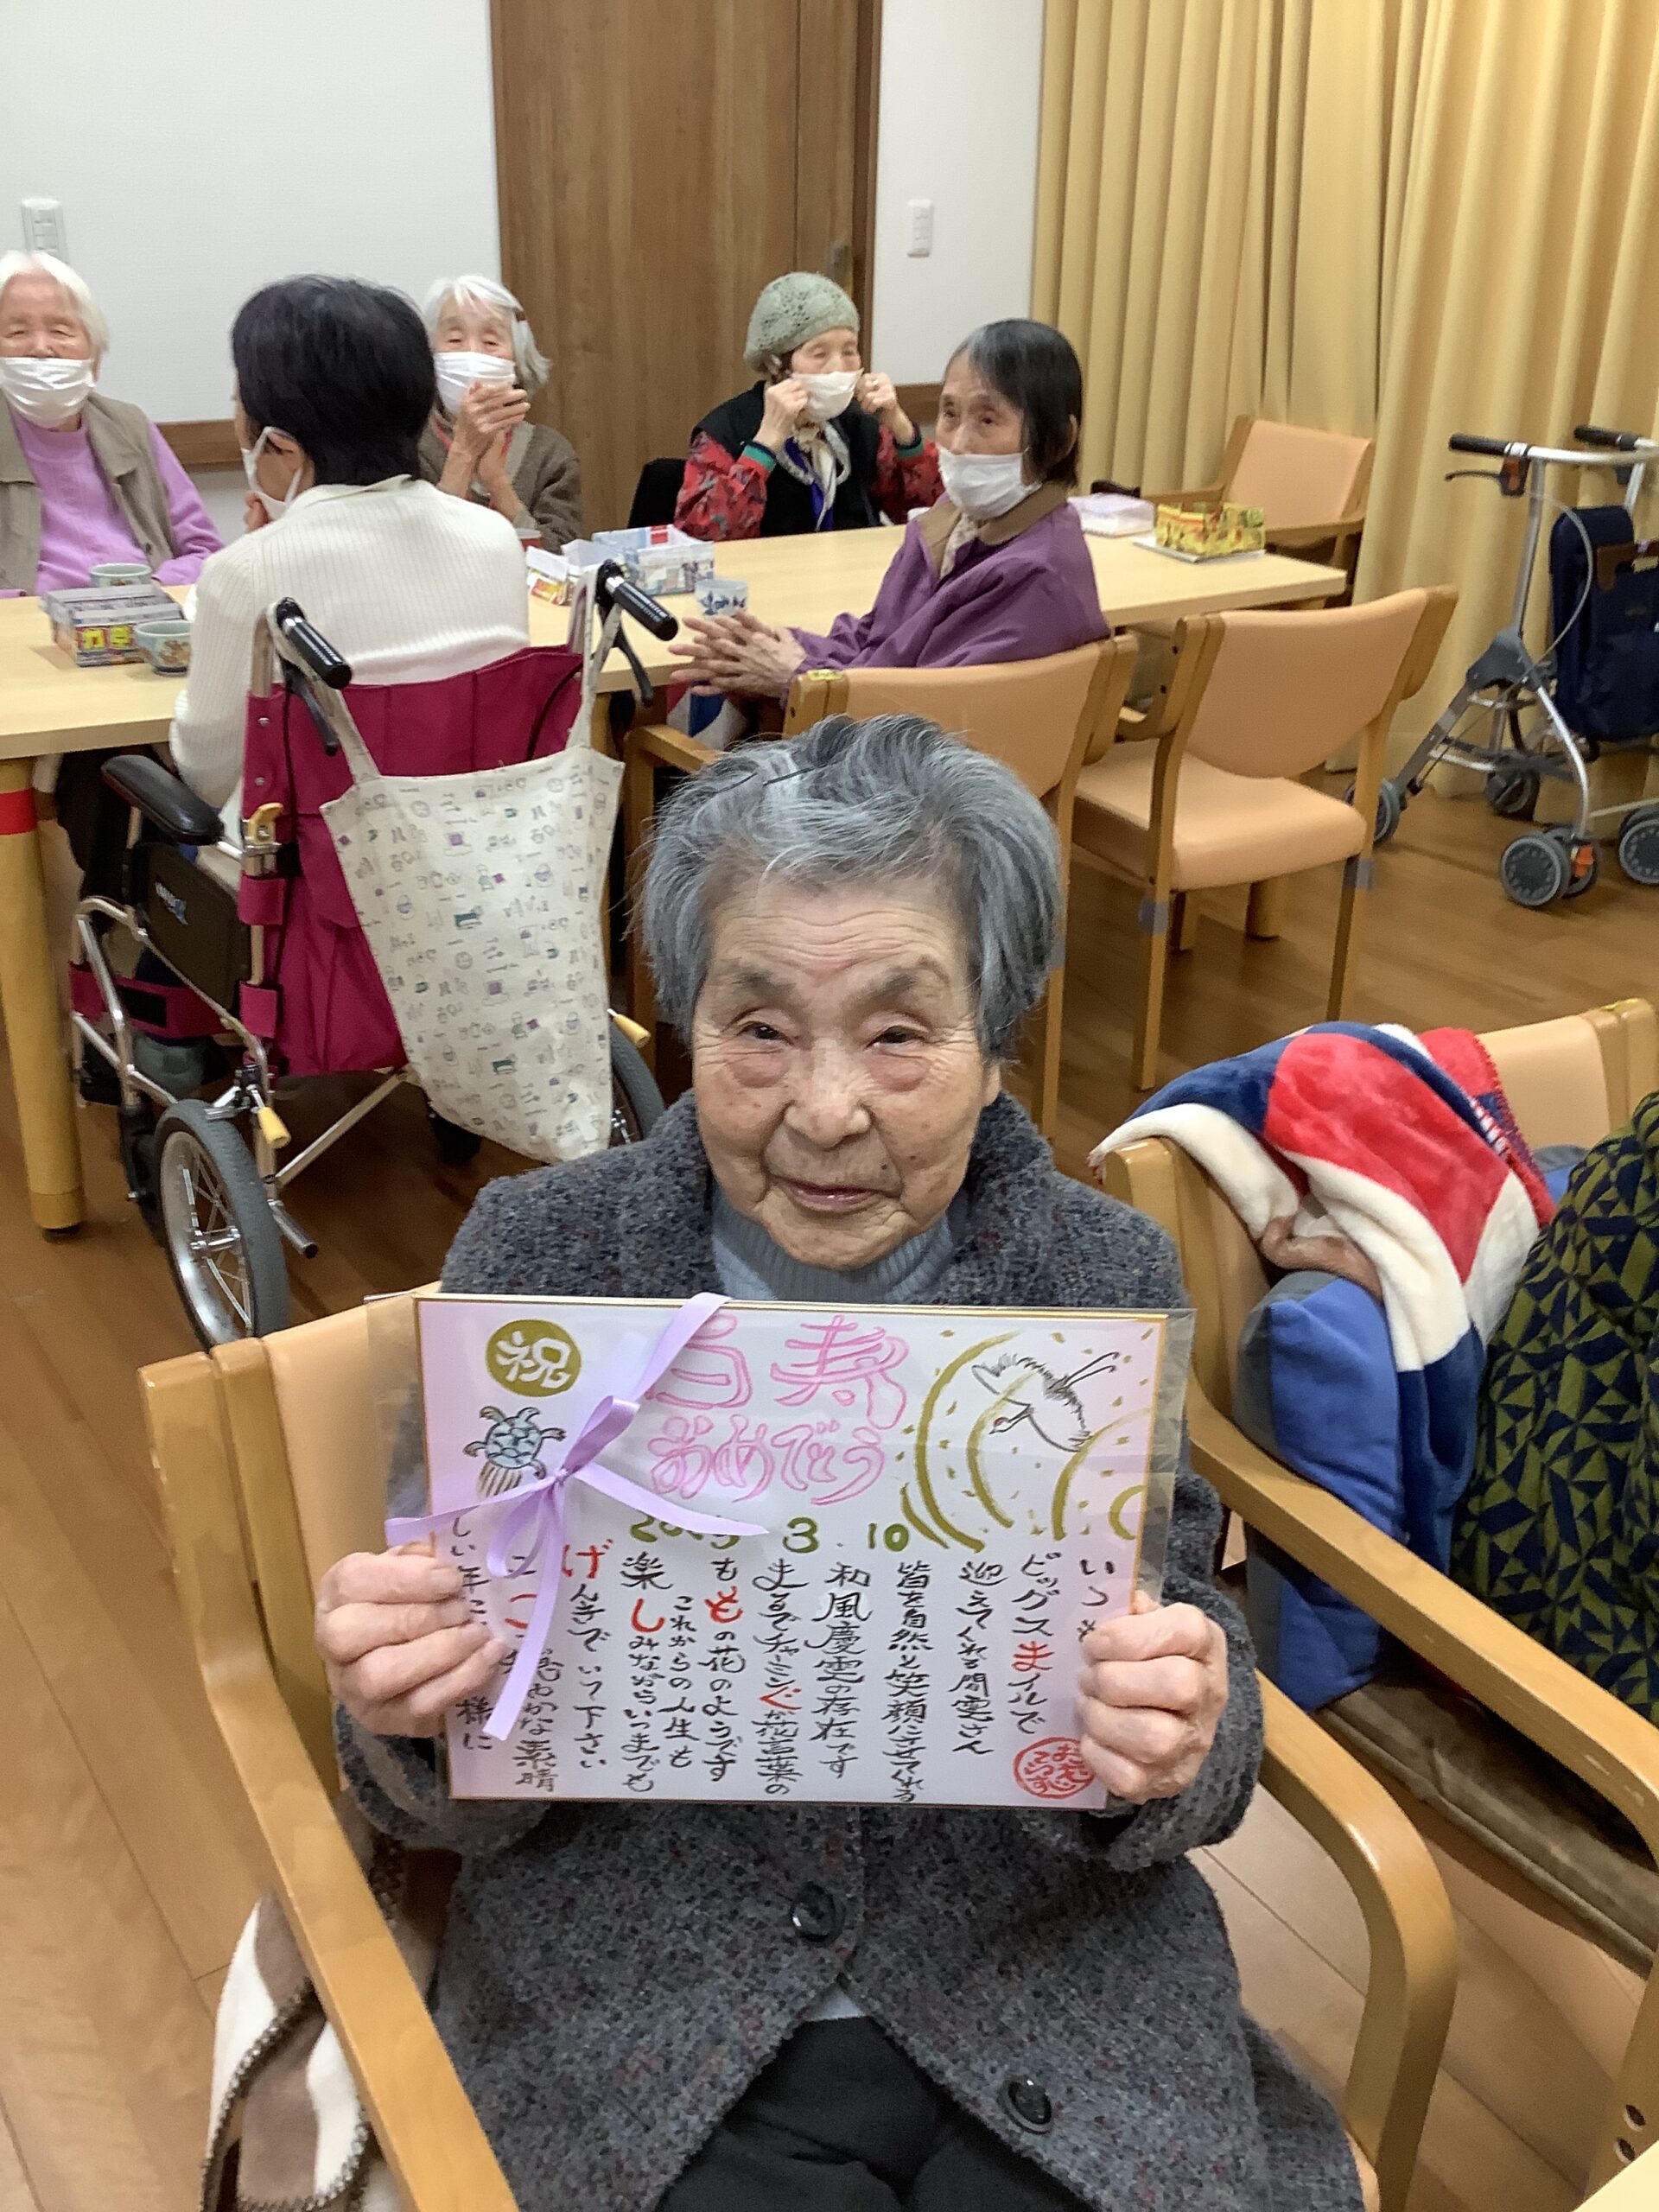 祝
百寿
おめでとう
3.10
いつも
ビッグスまイルで
迎えてくれる間雲さん
皆を自然と笑顔にさせてくれる
和風慶雲の存在です
まるでチャーミングが花言葉の
ももの花のようです
これからの人生も
楽しみながらいつまでも
げんきでいて下さい
おかな素晴
しい年に
様に